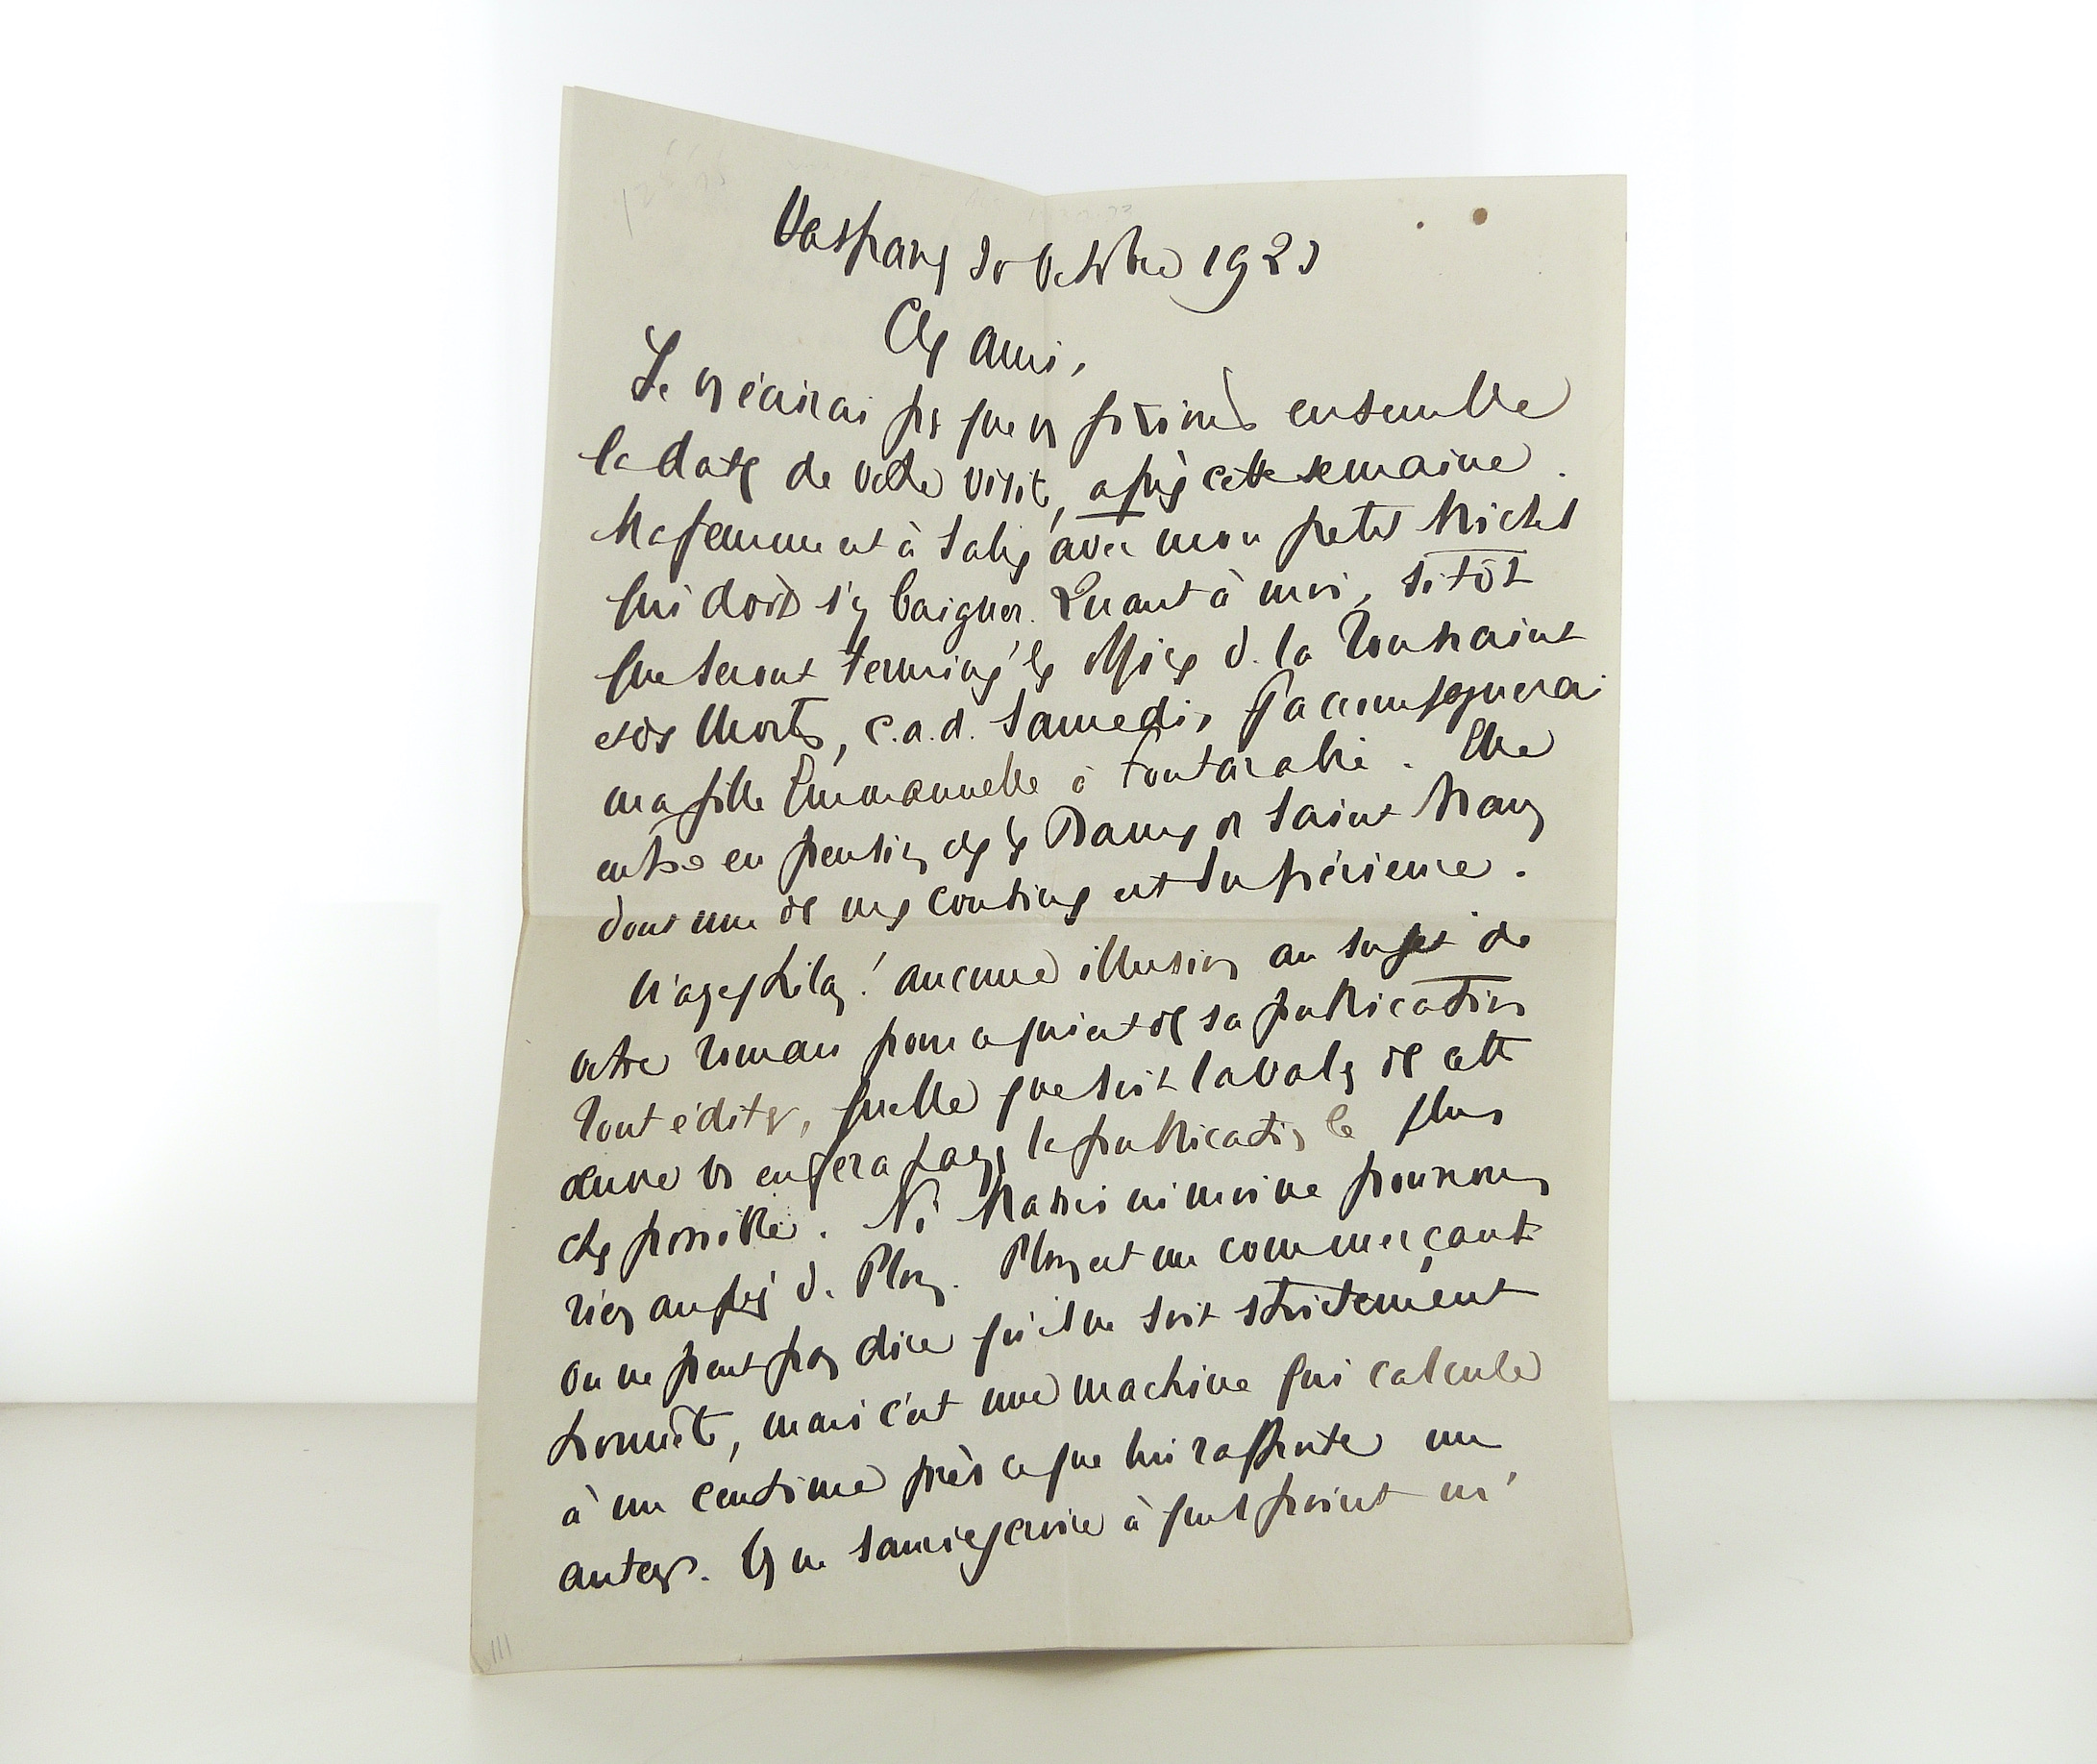 Hasparren 30 Octobre 1923
Cher Ami,
Je vs écrirai pr que ns fixions ensemble
la date de votre visite, après cette semaine.
Ma femme est à Salies avec mon petit Michel
qui doit s'y baigner. Quant à moi, sitôt
que seront terminés les offices de la Toussaint
et des Morts, c.a.d. Samedi, j'accompagnerai
ma fille Emmanuelle à Fontarabie. Elle
entre en pension chez les Dames de Saint Maur
dont une de mes cousines est Supérieure.
N'ayez hélas! aucune illusion au sujet de
votre roman pour ce qui est de sa publication
Tout éditeur, quelle que soit la valeur de cette
œuvre vs en fera payer la publication le plus
cher possible. Ni Massis ni moi ne pourrons
rien auprès de Plon. Plon est un commerçant
on ne peut pas dire qu'il ne soit strictement
honnête, mais c'est une machine qui calcule
à un centime près ce que lui rapporte un
auteur. Vs ne sauriez croire à quel point m'